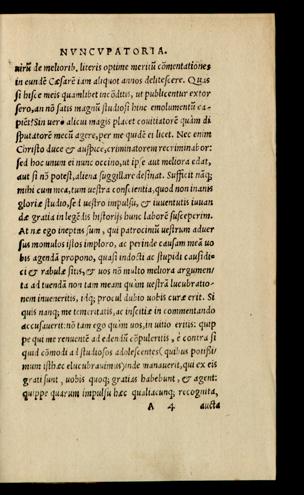 NVNCVPATORIA.
uirũ de meliorib. literis optime meritũ cõmentationes
in eundẽ Cæsarẽ iam aliquot annos delitescere. Quas
si hisce meis quamlibet incõditis, ut publicentur extor
sero, an nõ satis magnũ studiosi hinc emolumentũ ca-
piẽt? Sin uero alicui magis placet cõuitiatorẽ quàm di
sputatorẽ mecũ agere, per me quidẽ ei licet. Nec enim
Christo duce & auspice, criminatorem recriminabor:
sed hoc unum ei nunc occino, ut ipse aut meliora edat,
aut si nõ potest, aliena suggillare desinat. Sufficit nãq;
mihi cum mea, tum uestra conscientia, quod non inanis
gloriæ studio, sed uestro impulsu, & iuuentutis iuuan
dæ gratia in legẽdis historijs hunc laborẽ susceperim.
At ne ego ineptus sum, qui patrociniũ uestrum aduer
sus momulos istos imploro, ac perinde causam meã uo
bis agendã propono, quasi indocti ac stupidi causidi-
ci & rabulæ sitis, & uos nõ multo meliora argumen
ta ad tuendã non tam meam quàm uestrã lucubratio-
nem inueneritis, idq; procul dubio uobis curæ erit. Si
quis nanq; me temeritatis, ac inscitiæ in commentando
accusauerit: nõ tam ego quàm uos, in uitio eritis: quip
pe qui me renuentẽ ad edendũ cõpuleritis, è contra si
quid cõmodi ad studiosos adolescentes (quibus potissi/
mum isthæc elucubrauimus) inde manauerit, qui ex eis
grati sunt, uobis quoq; gratias habebunt, & agent:
quippe quarum impulsu hæc qualiacunq; recognita,
A 4 aucta